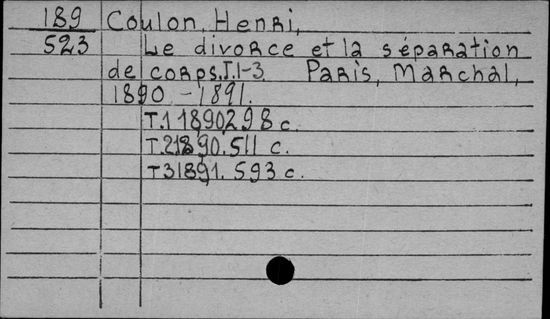 189 Coulon, Henri,
523 Le divorce et la séparation
de corps.T.1-3. Paris, Marchal,
1890 - 1891.
T.1 1890 298 c.
T.2 1890. 511 c.
T 3 1891. 593 c.